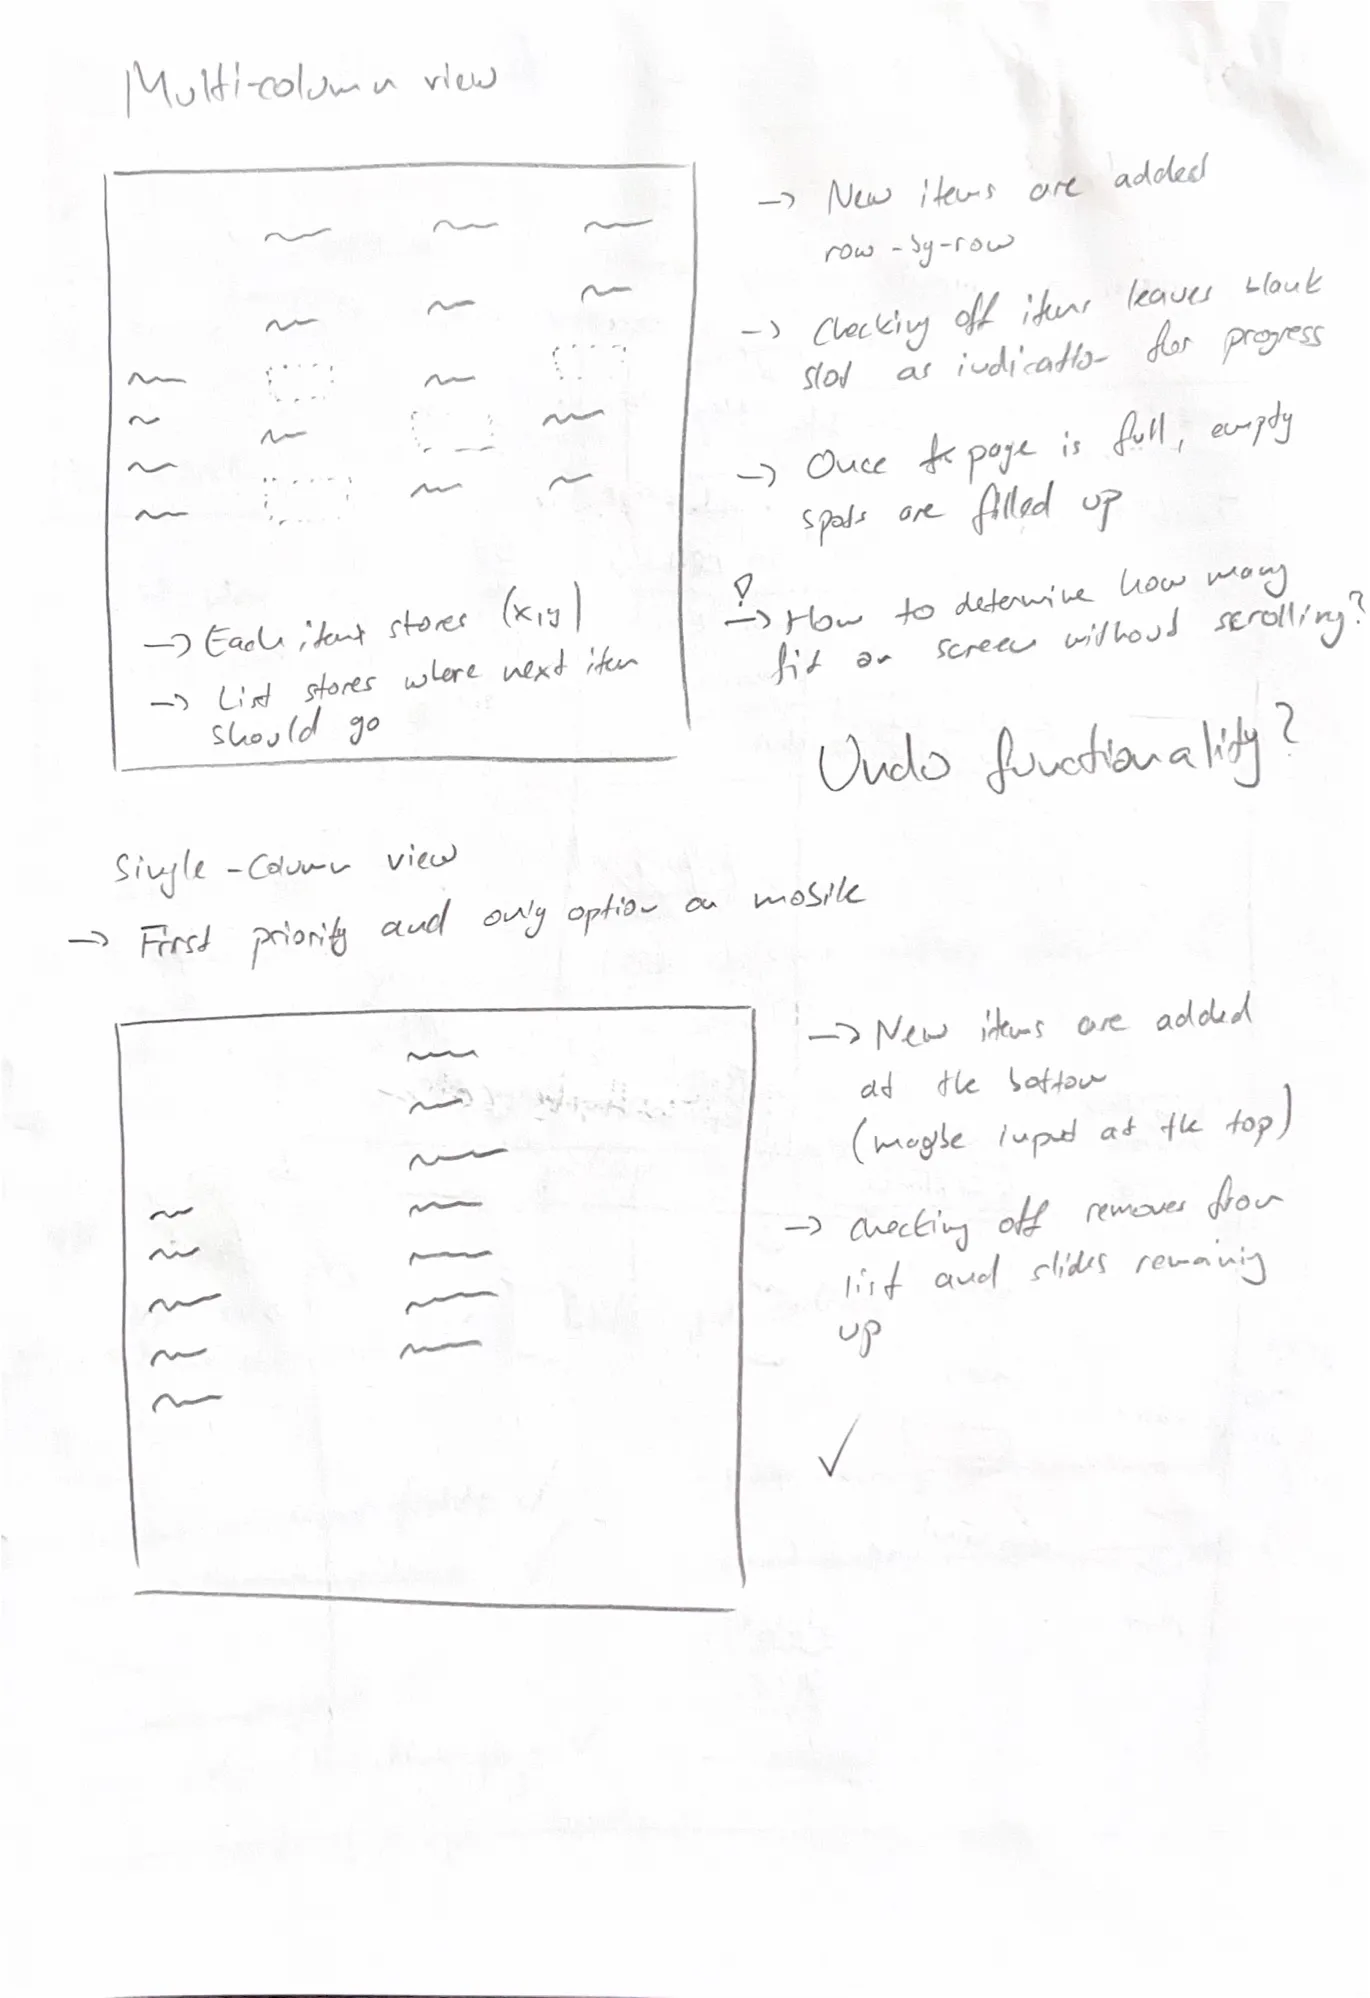 Multi-column view
→ New items are added
row-by-row
→ Checking off items leaves blank
slot as indication for progress
→ Once the page is full, empty
spots are filled up
! → How to determine how many
fit on screen without scrolling?
→ Each item stores (x,y)
→ List stores where next item
should go
Undo functionality?
Single-Column view
→ First priority and only option on mobile
→ New items are added
at the bottom
(maybe input at the top)
→ checking off removes from
list and slides remaining
up
✓